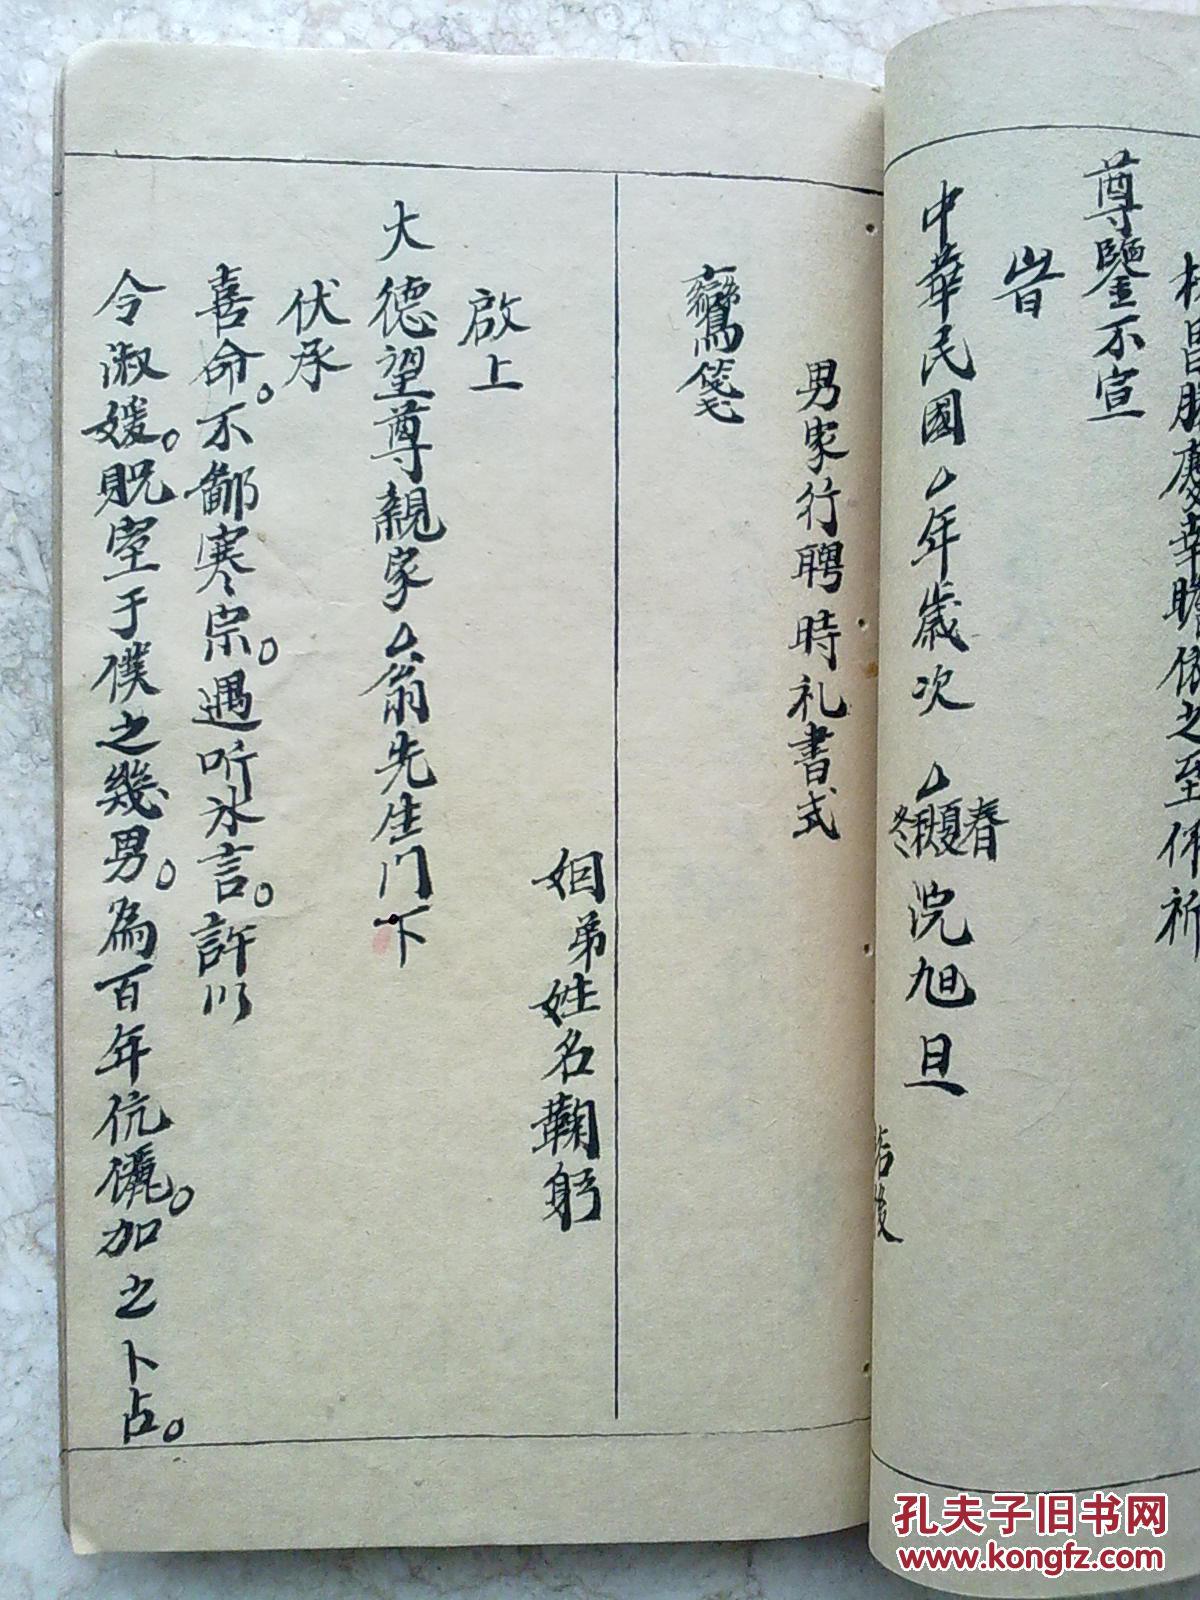 尊鑒不宣
旹
中華民國厶年歲次厶春夏秋冬浣旭旦
男家行聘時礼書式
鸞箋
姻弟姓名鞠躬
啟上
大德望尊親家厶翁先生门下
伏承
喜命。不鄙寒宗。遇听氷言。許以
令淑媛。貺室于僕之幾男。為百年伉儷。加之卜占。
孔夫子旧书网
www.kongfz.com